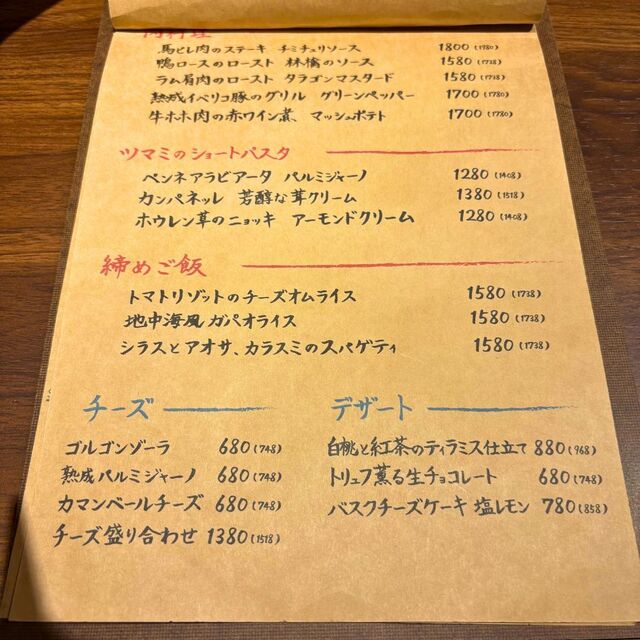 肉料理
馬ヒレ肉のステーキ チミチュリソース 1800(1780)
鴨ロースのロースト 林檎のソース 1580(1738)
ラム肩肉のロースト タラゴンマスタード 1580(1738)
熟成イベリコ豚のグリル グリーンペッパー 1700(1780)
牛ホホ肉の赤ワイン煮、マッシュポテト 1700(1780)
ツマミのショートパスタ
ペンネアラビアータ パルミジャーノ 1280(1408)
カンパネッレ 芳醇な茸クリーム 1380(1518)
ホウレン草のニョッキ アーモンドクリーム 1280(1408)
締めご飯
トマトリゾットのチーズオムライス 1580(1738)
地中海風ガパオライス 1580(1738)
シラスとアオサ、カラスミのスパゲティ 1580(1738)
チーズ
ゴルゴンゾーラ 680(748)
熟成パルミジャーノ 680(748)
カマンベールチーズ 680(748)
チーズ盛り合わせ 1380(1518)
デザート
白桃と紅茶のティラミス仕立て 880(968)
トリュフ薫る生チョコレート 680(748)
バスクチーズケーキ 塩レモン 780(858)